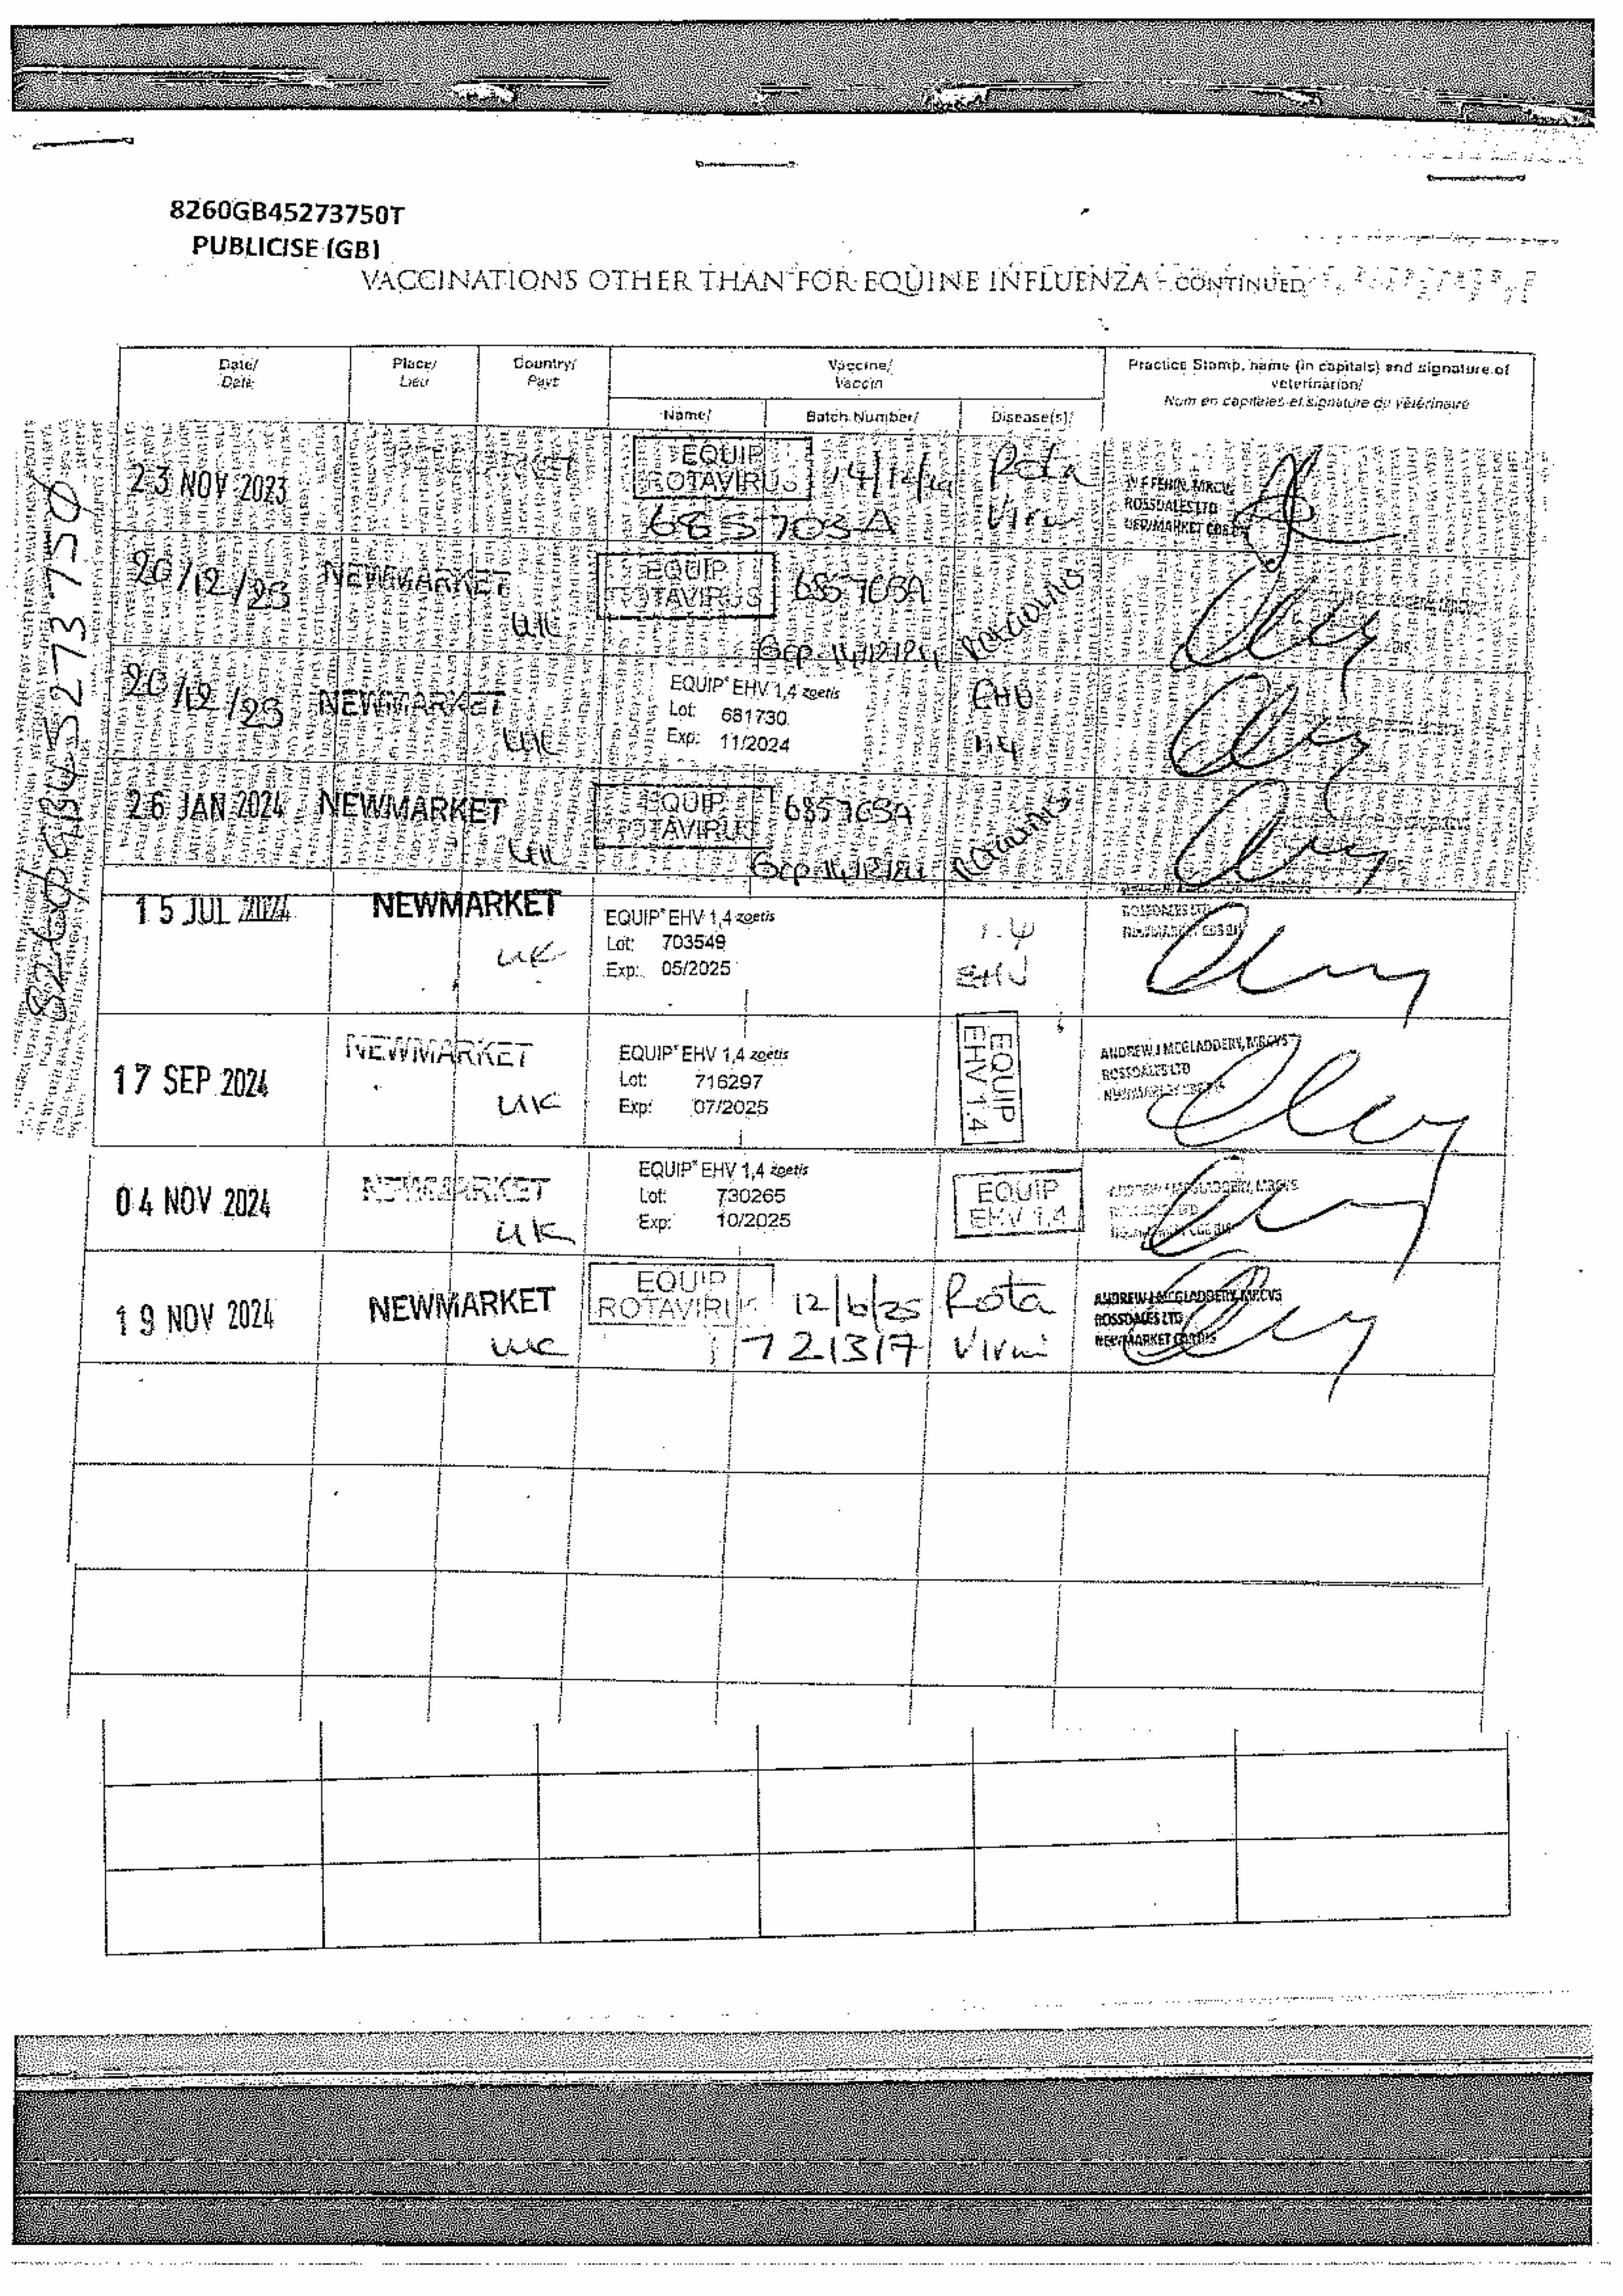 8260GB45273750T
PUBLICISE (GB)
VACCINATIONS OTHER THAN FOR EQUINE INFLUENZA - CONTINUED
Date/ Place/ Country/ Vaccine/ Practice Stamp, name (in capitals) and signature of
Date Lieu Pays Vaccin veterinarian/
Nom en capitales et signature du vétérinaire
Name/ Batch Number/ Disease(s)/
23 NOV 2023 EQUIP ROTAVIRUS 14/12/24 Rota
685703A Virus
ROSSDALES LTD
NEWMARKET
20/12/23 NEWMARKET EQUIP ROTAVIRUS 685703A
UK Exp 14/12/24 ROTAVIRUS
20/12/23 NEWMARKET EQUIP® EHV 1,4 zoetis EHV
Lot: 681730
UK Exp: 11/2024 1.4
26 JAN 2024 NEWMARKET EQUIP ROTAVIRUS 685703A
UK Exp 14/12/24 ROTAVIRUS
15 JUL 2024 NEWMARKET EQUIP® EHV 1,4 zoetis 1.4
UK Lot: 703549 EHV
Exp: 05/2025
ROSSDALES LTD
17 SEP 2024 NEWMARKET EQUIP® EHV 1,4 zoetis EQUIP EHV 1.4 ANDREW J MCGLADDERY, MRCVS
Lot: 716297 ROSSDALES LTD
UK Exp: 07/2025
04 NOV 2024 NEWMARKET EQUIP® EHV 1,4 zoetis EQUIP EHV 1,4 ANDREW J MCGLADDERY, MRCVS
Lot: 730265
UK Exp: 10/2025
19 NOV 2024 NEWMARKET EQUIP ROTAVIRUS 12/6/25 Rota ANDREW J MCGLADDERY, MRCVS
UK 721317 Virus ROSSDALES LTD
NEWMARKET
8260GB45273750